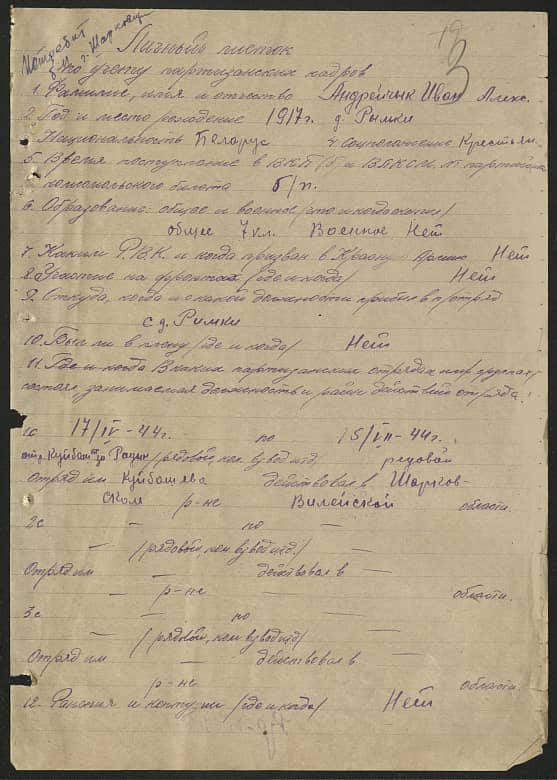 Потребит
г. Шарковщ
3
Личный листок
по учёту партизанских кадров
1. Фамилие, имя и отчество Андрейчык Иван Алекс.
2. Год и место рождение 1917г. д. Рымки
Национальность Беларус 4 соцположение Крестьян.
5. Время поступление в ВКП(б) и ВЛКСМ, № партийного
комсомольского билета б/п.
6. Образование: общее и военное (что и когда окончил)
общее 7 кл. Военное Нет
7. Каким Р.В.К. и когда призван в Красную Армию Нет
8. Участие на фронтах /где и когда/ Нет
9. Откуда, когда и с какой должности прибыл в п/отряд
с д. Римки
10. Был ли в плену /где и когда/ Нет
11. Где и когда в каких партизанских отрядах или группах
состоял, занимаемая должность и район действий отряда.
1с 17/IV-44г. по 5/VII-44г.
/рядовой, ком. взвод итд/ редовой
Отряд им Куйбашева действовал в Шарков-
ском р-не Вилейской области.
2с — по —
— /рядовой, ком взвод итд./ —
Отряд им — действовал в —
— р-не области.
3с — по —
— /рядовой, ком взвод итд/ —
Отряд им — действовал в —
— р-не области.
12. Ранения и контузии /где и когда/ Нет